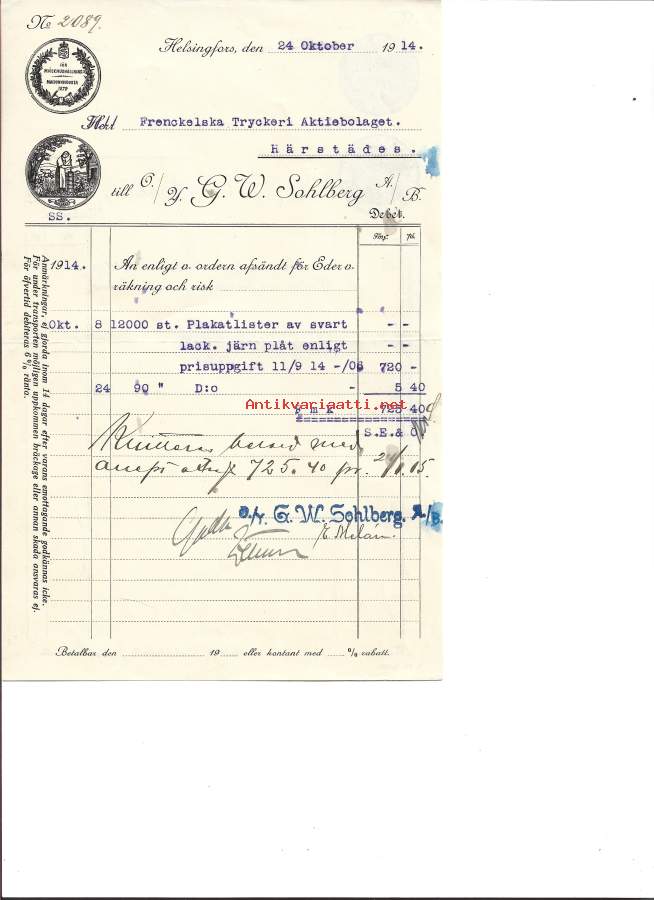 No 2089.
Helsingfors, den 24 Oktober 1914.
FÖR
1879
Frenckelska Tryckeri Aktiebolaget.
Härstädes.
till O./Y. G. W. Sohlberg A./B.
SS.
Debet.
Fmf. pi.
1914. An enligt o. ordern afsändt för Eder o.
räkning och risk
Okt. 8 12000 st. Plakatlister av svart - -
lack. järn plåt enligt
prisuppgift 11/9 14 -/06 720 -
24 90 " D:o - 5 40
Antikvariaatti.net
F m k 725 40
S.E.& O.
Kvitteras med
725.40 pr. 24/1.15.
O./Y. G. W. Sohlberg. A/B.
Anmärkningar, ej gjorda inom 14 dagar efter varans emottagande godkännas icke.
För under transporten möjligen uppkommen bräckage eller annan skada ansvaras ej.
För öfvertid debiteras 6 % ränta.
Betalbar den 19 eller kontant med % rabatt.